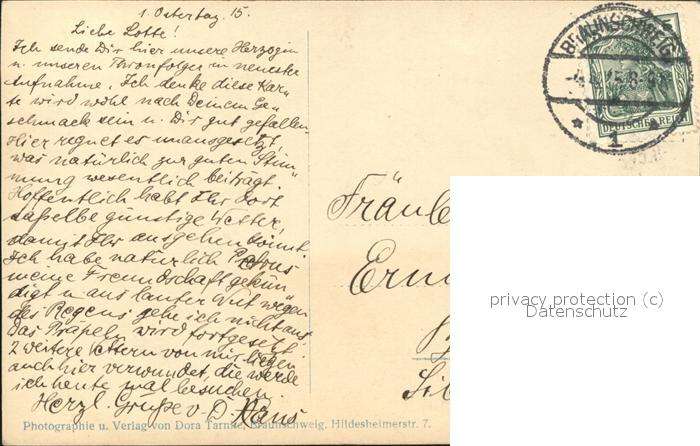 1. Ostertag. 15.
Liebe Lotte!
Ich sende Dir hier unsere Herzogin
u. unseren Thronfolger in neuester
Aufnahme. Ich denke diese Kar-
te wird wohl nach Deinem Ge-
schmack sein u. Dir gut gefallen
Hier regnet es unausgesetzt,
was natürlich zur guten Stim-
mung wesentlich beiträgt.
Hoffentlich habt Ihr dort
dasselbe günstige Wetter,
damit Ihr ausgehen könnt.
Ich habe natürlich Petrus
meine Freundschaft gekün-
digt u. aus lauter Wut wegen
des Regens gehe ich nicht aus
Das wird fortgesetzt.
2 weitere Vettern von mir liegen
auch hier verwundet, die werde
ich heute mal besuchen.
Herzl. Grüße v. D. Hans
BRAUNSCHWEIG
DEUTSCHES REICH
1
Fräule
Ern
privacy protection (c)
Datenschutz
Photographie u. Verlag von Dora Tarnke, Braunschweig, Hildesheimerstr. 7.